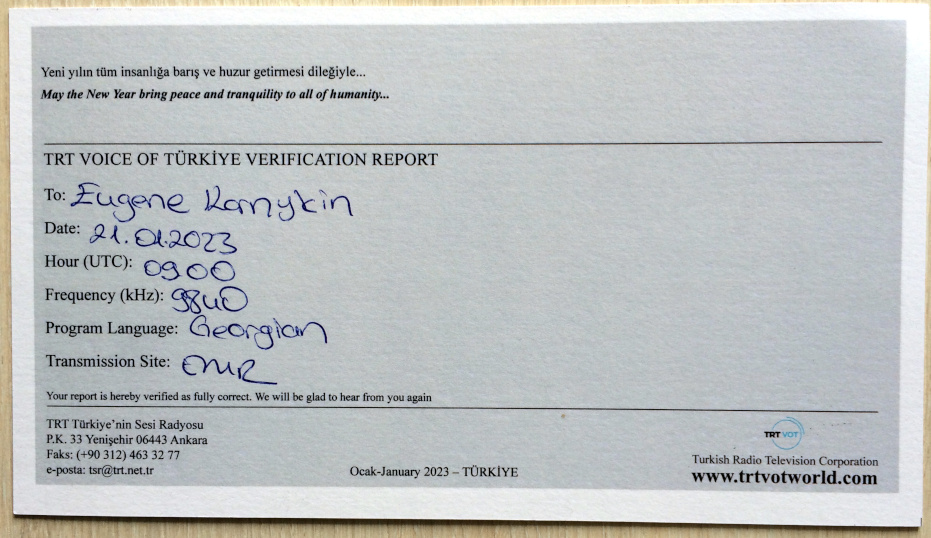 Yeni yılın tüm insanlığa barış ve huzur getirmesi dileğiyle...
May the New Year bring peace and tranquility to all of humanity...
TRT VOICE OF TÜRKİYE VERIFICATION REPORT
To: Eugene Kanykin
Date: 21.01.2023
Hour (UTC): 0900
Frequency (kHz): 9840
Program Language: Georgian
Transmission Site: EMR
Your report is hereby verified as fully correct. We will be glad to hear from you again
TRT Türkiye'nin Sesi Radyosu
P.K. 33 Yenişehir 06443 Ankara
Faks: (+90 312) 463 32 77
e-posta: tsr@trt.net.tr
Ocak-January 2023 – TÜRKİYE
TRT VOT
Turkish Radio Television Corporation
www.trtvotworld.com